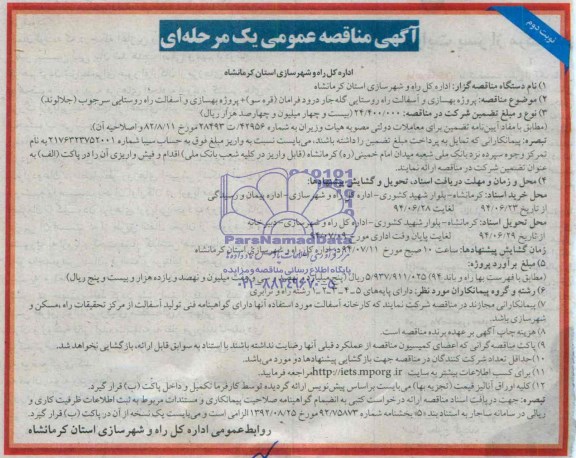 نوبت دوم
آگهی مناقصه عمومی یک مرحله‌ای
اداره کل راه و شهرسازی استان کرمانشاه
۱) نام دستگاه مناقصه گزار: اداره کل راه و شهرسازی استان کرمانشاه
۲) موضوع مناقصه: پروژه بهسازی و آسفالت راه روستایی گله جار درود فرامان (قره سو)+ پروژه بهسازی و آسفالت راه روستایی سرجوب (جلالوند)
۳) نوع و مبلغ تضمین شرکت در مناقصه: ۲۴/۴۰۰/۰۰۰ (بیست و چهار میلیون و چهارصد هزار ریال)
(مطابق با مفاد آیین‌نامه تضمین برای معاملات دولتی مصوبه هیات وزیران به شماره ۴۲۹۵۶/ت ۲۸۴۹۳ مورخ ۸۲/۸/۱۱ و اصلاحیه آن).
تبصره: پیمانکارانی که تمایل به پرداخت مبلغ تضمین را داشته باشند، می‌بایست نسبت به واریز مبلغ فوق به حساب سیبا شماره ۲۱۷۶۳۲۳۷۵۲۰۰۱ به نام
تمرکز وجوه سپرده نزد بانک ملی شعبه میدان امام خمینی(ره) کرمانشاه (قابل واریز در کلیه شعب بانک ملی) اقدام و فیش واریزی آن را در پاکت (الف) به
عنوان تضمین شرکت در مناقصه ارائه نمایند.
۴) محل و زمان و مهلت دریافت اسناد، تحویل و گشایش پیشنهادها:
محل خرید اسناد: کرمانشاه- بلوار شهید کشوری- اداره کل راه و شهرسازی- اداره پیمان و رسیدگی
از تاریخ ۹۴/۰۶/۲۳ لغایت ۹۴/۰۶/۲۸
محل تحویل اسناد: کرمانشاه- بلوار شهید کشوری- اداره کل راه و شهرسازی- دبیرخانه
از تاریخ ۹۴/۰۶/۲۹ لغایت پایان وقت اداری مورخ ۹۴/۰۷/۰۹
زمان گشایش پیشنهادها: ساعت ۱۰ صبح مورخ ۹۴/۰۷/۱۱ در اداره کل راه و شهرسازی استان کرمانشاه
۵) مبلغ برآورد پروژه:
(مطابق با فهرست بها راه و باند ۹۴) ۵/۹۳۷/۹۱۱/۰۳۵ ریال (پنج میلیارد و نهصد و سی و هفت میلیون و نهصد و یازده هزار و سی و پنج ریال)
۶) رشته و گروه پیمانکاران مورد نظر: دارای پایه‌های ۵-۴-۳-۲-۱ رشته راه و ترابری
۷) پیمانکارانی مجازند در مناقصه شرکت نمایند که کارخانه آسفالت مورد استفاده آنها دارای گواهینامه فنی تولید آسفالت از مرکز تحقیقات راه، مسکن و
شهرسازی باشد.
۸) هزینه چاپ آگهی بر عهده برنده مناقصه است.
۹) پاکت مناقصه گرانی که اعضای کمیسیون مناقصه از عملکرد قبلی آنها رضایت نداشته باشند با استناد به سوابق قابل ارائه، بازگشایی نخواهد شد.
۱۰) حداقل تعداد شرکت کنندگان در مناقصه جهت بازگشایی پیشنهادها دو مورد می‌باشد.
۱۱) برای کسب اطلاعات بیشتر به سایت http://iets.mporg.ir مراجعه فرمایید.
۱۲) کلیه اوراق آنالیز قیمت (تجزیه بها) می‌بایست براساس پیش‌نویس ارائه گردیده توسط کارفرما تکمیل و داخل پاکت (ب) قرار گیرد.
تبصره: جهت دریافت اسناد مناقصه ارائه درخواست کتبی به انضمام گواهینامه صلاحیت پیمانکاری و مستندات مربوط به ثبت اطلاعات ظرفیت کاری و
ریالی در سامانه ساجار به استناد بند «۵» بخشنامه شماره ۹۲/۷۵۸۷۳ مورخ ۱۳۹۲/۰۸/۲۵ الزامی است و می‌بایست یک نسخه از آن در پاکت (ب) قرار گیرد.
روابط عمومی اداره کل راه و شهرسازی استان کرمانشاه
ParsNamadData
پایگاه اطلاع رسانی مناقصه و مزایده
۰۲۱-۸۸۳۴۹۶۷۰-۵